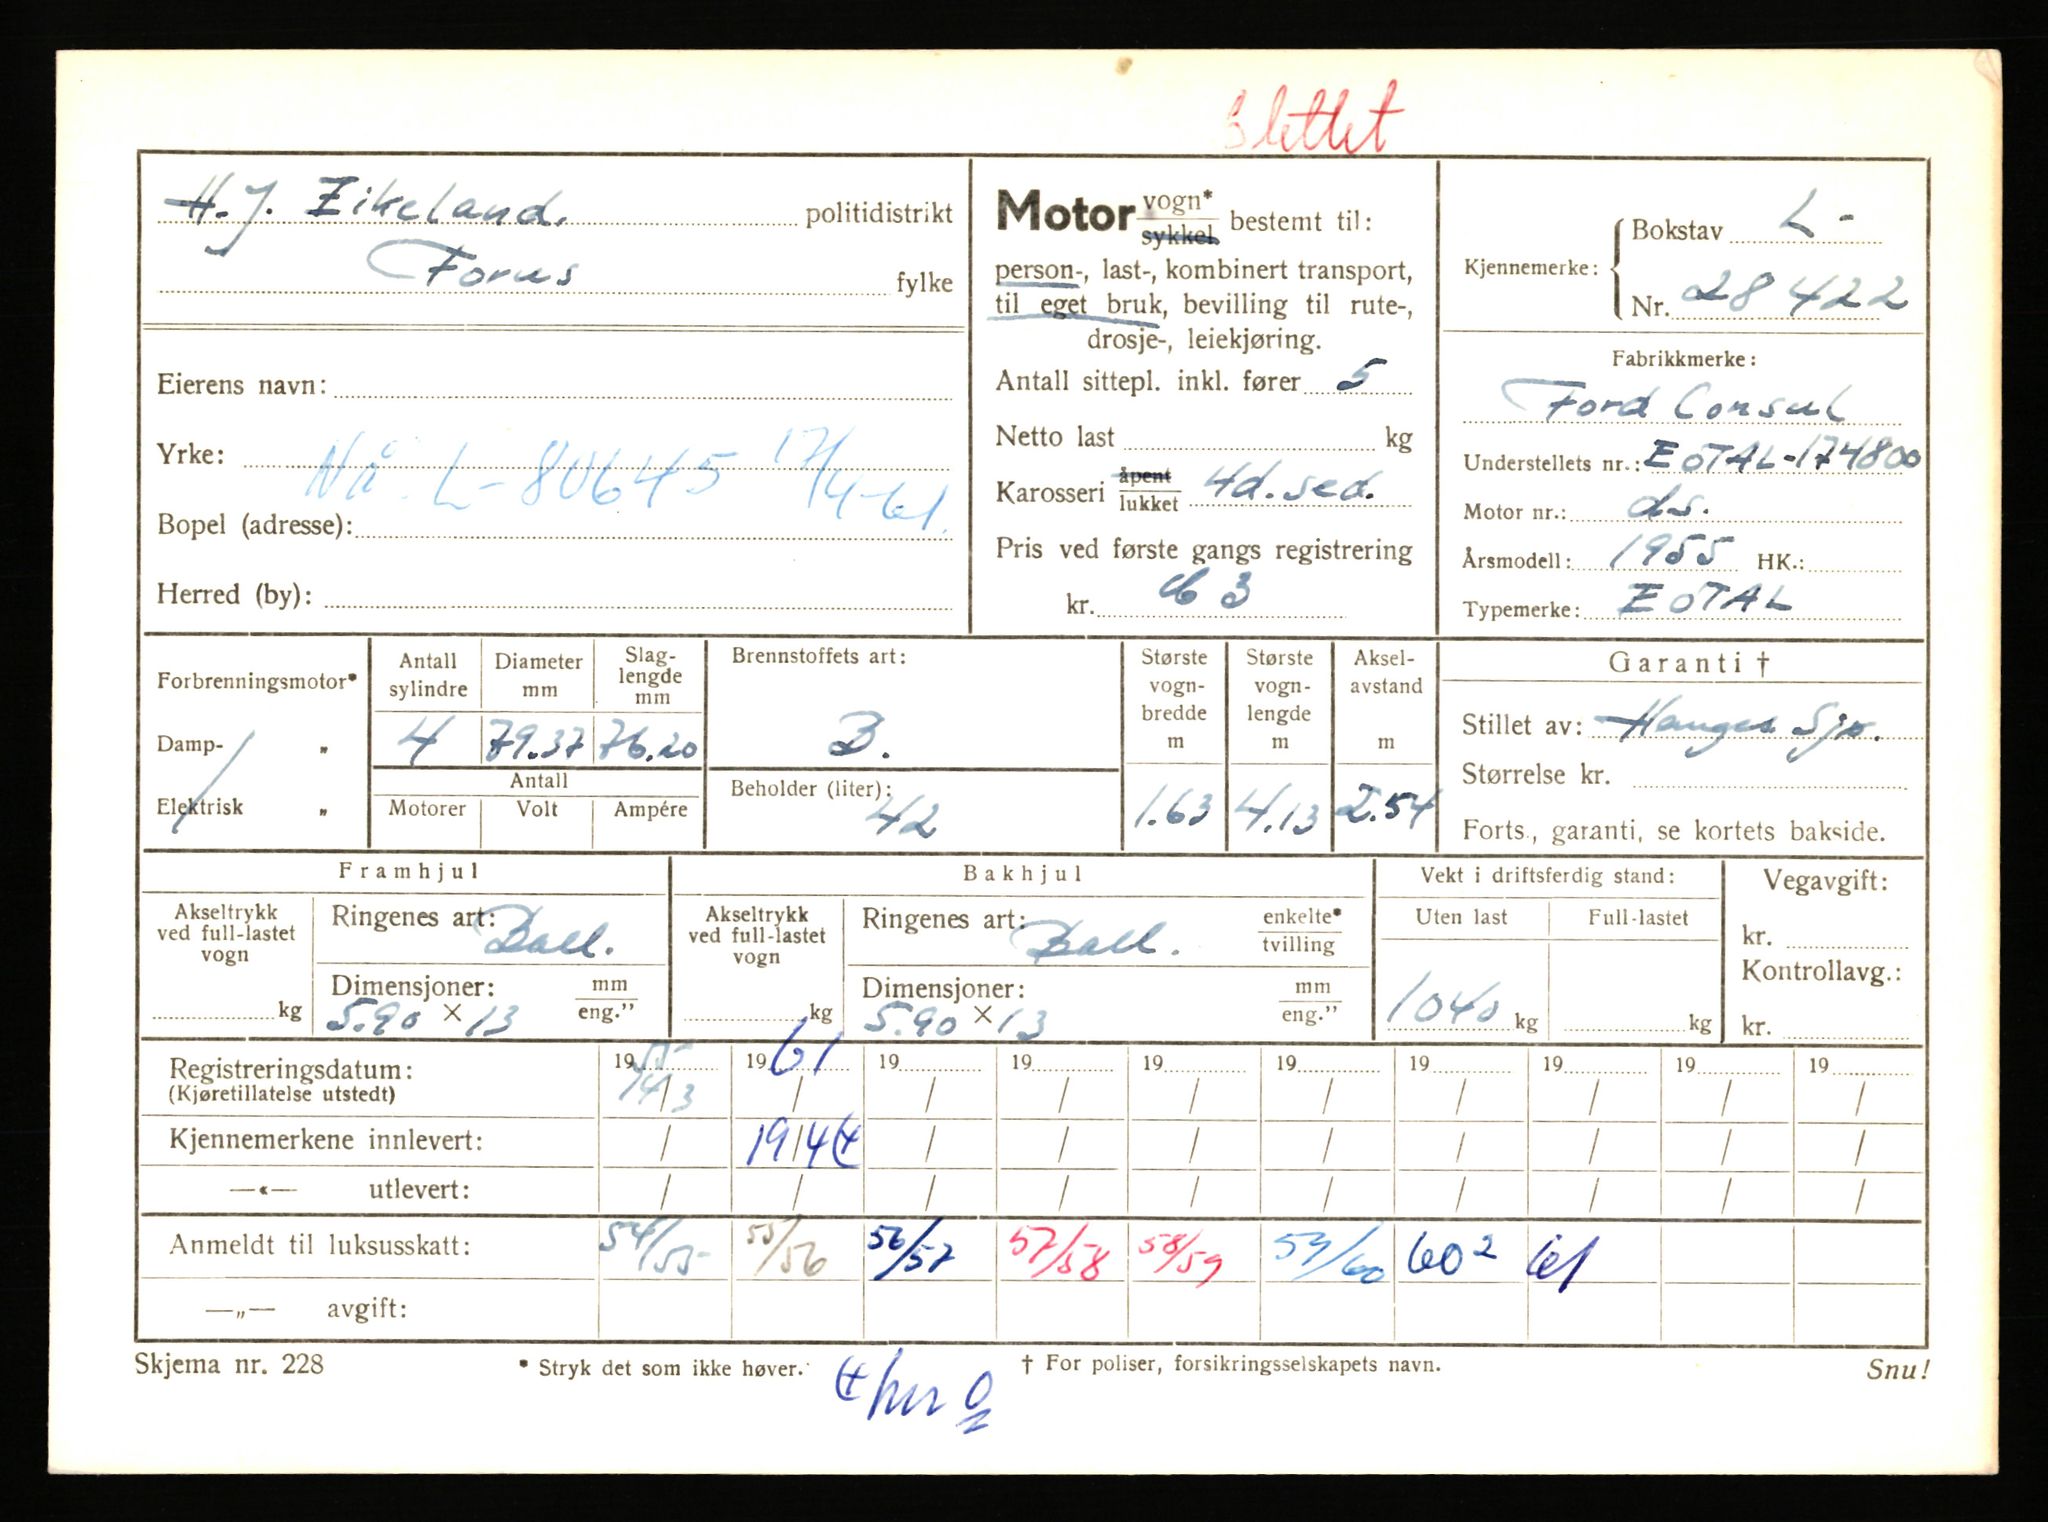 Slettet
H. J. Eikeland. politidistrikt
Forus fylke
Eierens navn:
Yrke:
Nå. L-80645 17/4-61.
Bopel (adresse):
Herred (by):
Motor vogn* sykkel bestemt til:
person-, last-, kombinert transport,
til eget bruk, bevilling til rute-,
drosje-, leiekjøring.
Antall sittepl. inkl. fører 5
Netto last kg
Karosseri åpent lukket 4d. sed.
Pris ved første gangs registrering
kr. 63
Kjennemerke: Bokstav L-
Nr. 28422
Fabrikkmerke:
Ford Consul
Understellets nr.: EOTAL-174800
Motor nr.: ds.
Årsmodell: 1955 HK.:
Typemerke: EOTAL
Forbrenningsmotor*
Damp- „
Elektrisk „
Antall sylindre
Diameter mm
Slag-
lengde
mm
4 79.37 76.20
Antall
Motorer Volt Ampére
Brennstoffets art:
B.
Beholder (liter):
42
Største
vogn-
bredde
m
1.63
Største
vogn-
lengde
m
4.13
Aksel-
avstand
m
2.54
Garanti †
Stillet av: Hauges Sjø.
Størrelse kr.
Forts., garanti, se kortets bakside.
Framhjul
Akseltrykk
ved full-lastet
vogn
kg
Ringenes art: Ball.
Dimensjoner: mm eng."
5.90 × 13
Bakhjul
Akseltrykk
ved full-lastet
vogn
kg
Ringenes art: Ball. enkelte* tvilling
Dimensjoner: mm eng."
5.90 × 13
Vekt i driftsferdig stand:
Uten last Full-lastet
1040 kg kg
Vegavgift:
kr.
Kontrollavg.:
kr.
Registreringsdatum: 1955 1961 19 19 19 19 19 19 19 19
(Kjøretillatelse utstedt) 14/3 / / / / / / / / /
Kjennemerkene innlevert: / 19/4 / / / / / / / /
—«— utlevert: / / / / / / / / / /
Anmeldt til luksusskatt: 54/55 55/56 56/57 57/58 58/59 59/60 60² 61
—„— avgift:
Skjema nr. 228 * Stryk det som ikke høver. † For poliser, forsikringsselskapets navn. Snu!